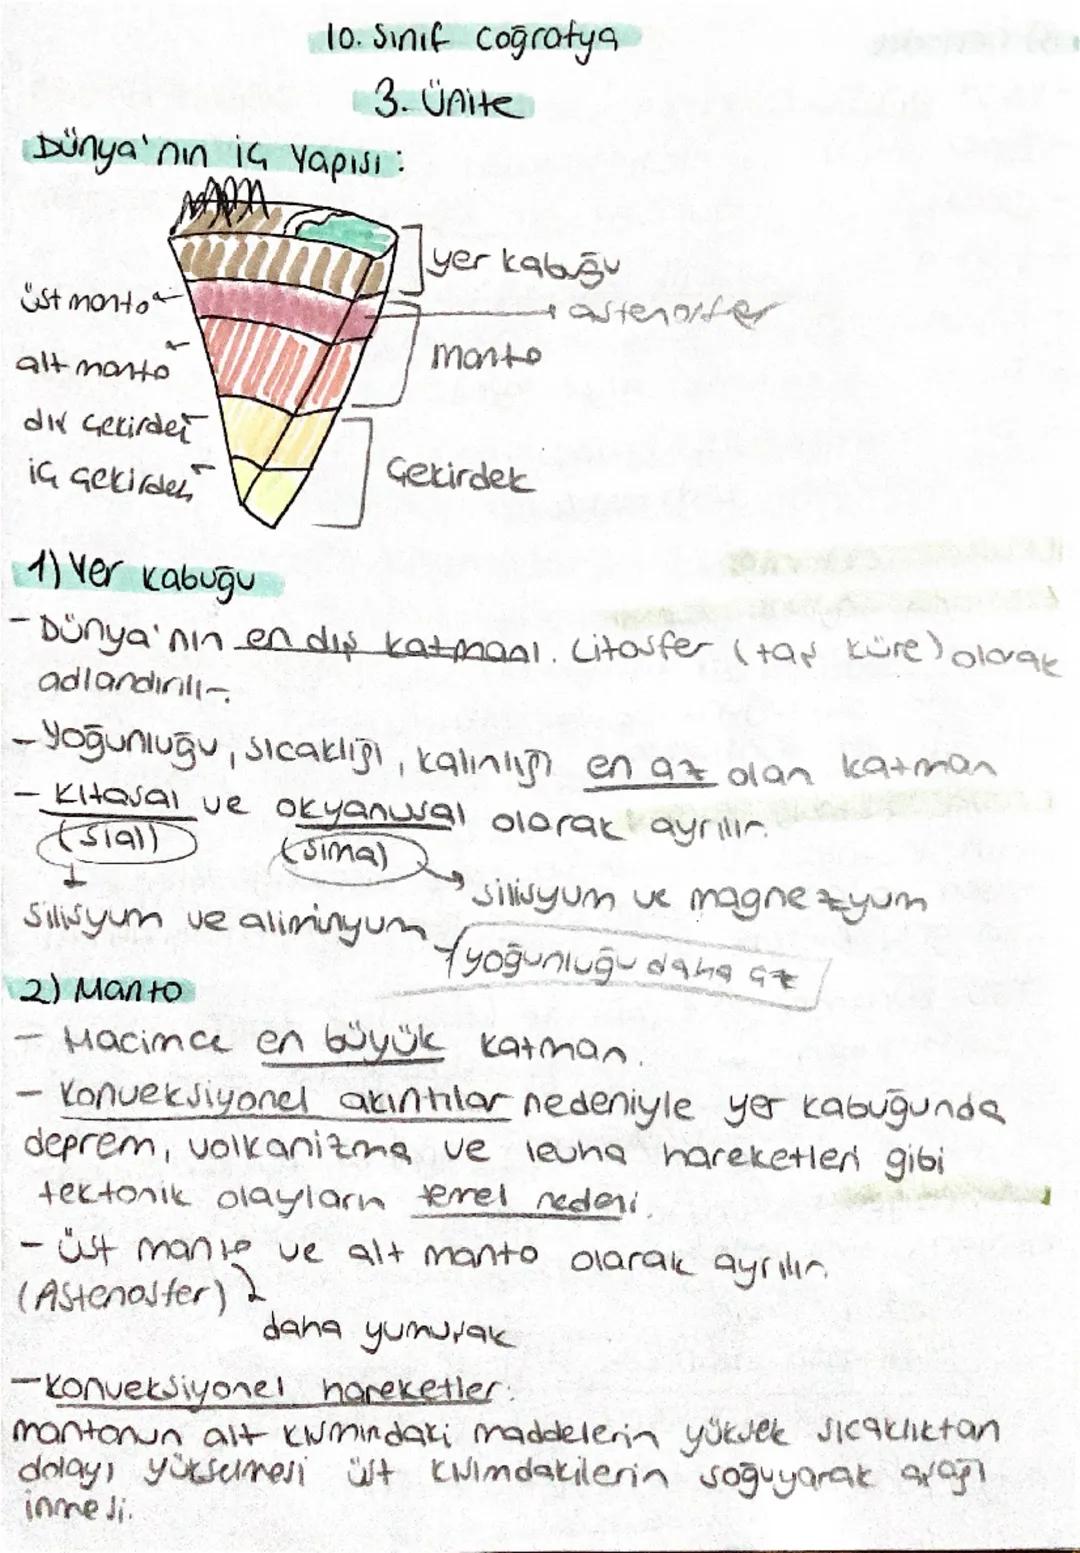 10. Sınıf Coğrafya
3. Ünite
Dünya'nın iç Yapısı:
yer kabuğu
üst manto
astenosfer
alt manto
manto
dış çekirdek
iç çekirdek
Çekirdek
1) Yer kabuğu
- Dünya'nın en dış katmanı. Litosfer (taş küre) olarak
adlandırılır.
- Yoğunluğu, sıcaklığı, kalınlığı en az olan katman
- Kıtasal ve okyanusal olarak ayrılır.
(sial) (sima)
silisyum ve magnezyum
silisyum ve aliminyum
yoğunluğu daha az
2) Manto
- Hacimce en büyük katman.
- Konveksiyonel akıntılar nedeniyle yer kabuğunda
deprem, volkanizma ve levha hareketleri gibi
tektonik olayların temel nedeni.
- üst manto ve alt manto olarak ayrılır.
(Astenosfer)
daha yumuşak
- Konveksiyonel hareketler:
mantonun alt kısmındaki maddelerin yüksek sıcaklıktan
dolayı yükselmesi üst kısımdakilerin soğuyarak aşağı
inmesi.